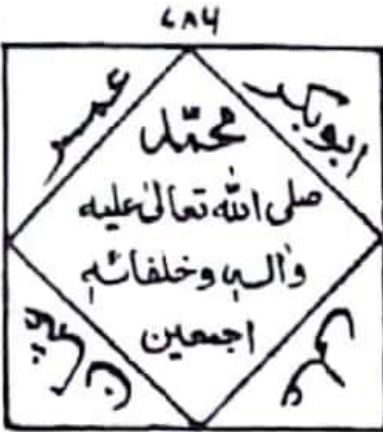 ۷۸۶
ابوبکر
عمر
محمّد
صلی اللہ تعالیٰ علیہ
واٰلہٖ وخلفائہٖ
اجمعین
عثمان
علی